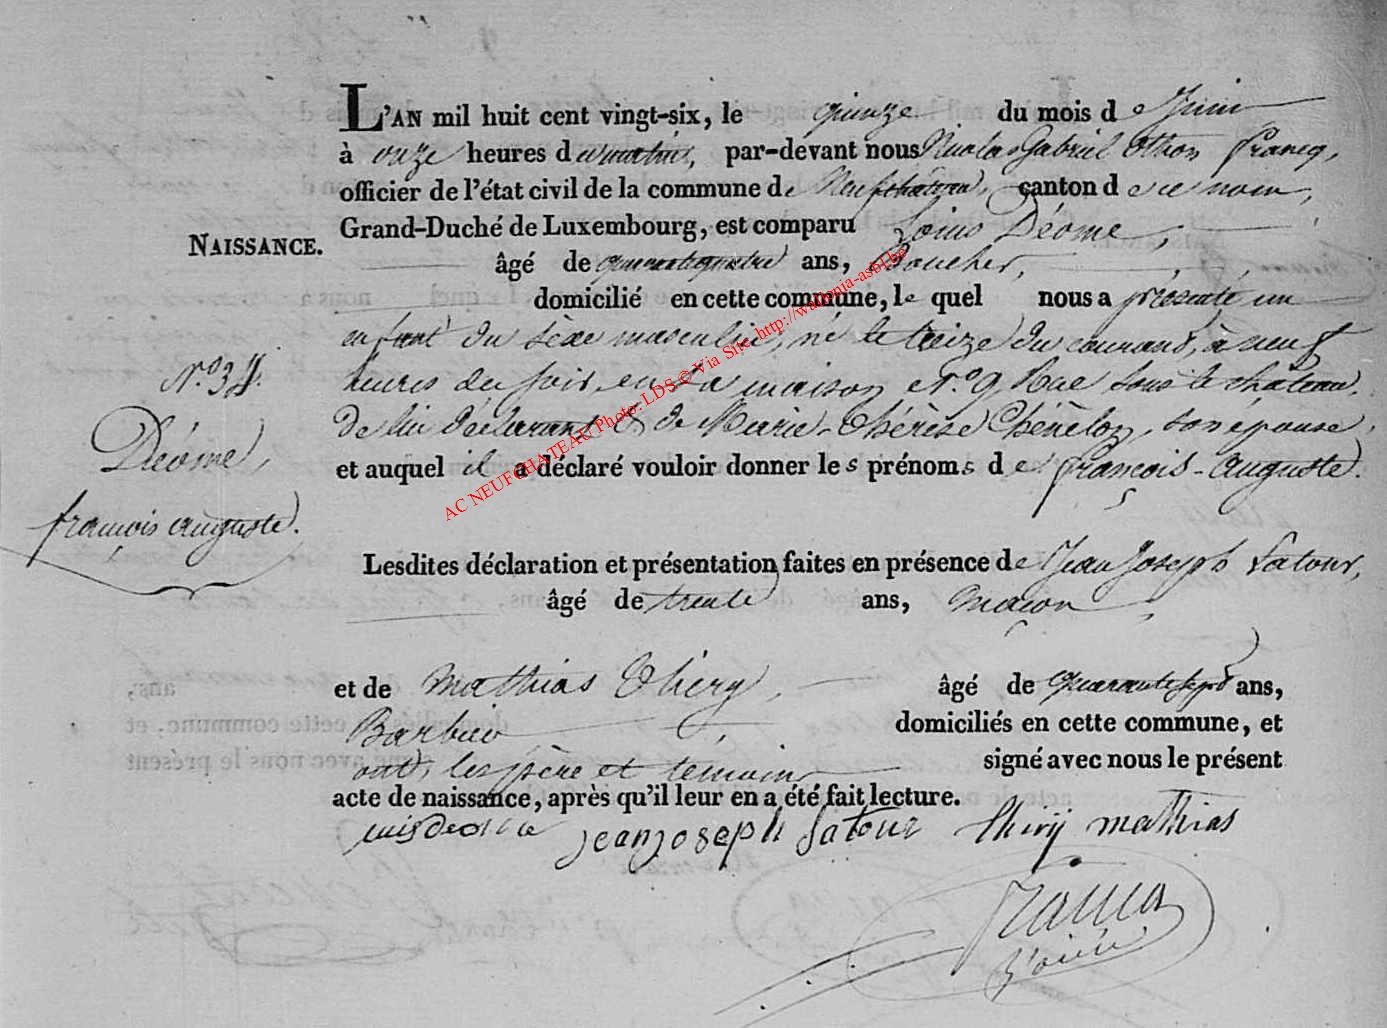 L'AN mil huit cent vingt-six, le quinze du mois de Juin
à onze heures du matin, par-devant nous Nicolas Gabriel Othon Francq,
officier de l'état civil de la commune de Neufchâteau, canton de ce nom,
Grand-Duché de Luxembourg, est comparu Louis Déome,
NAISSANCE.
âgé de quarantequatre ans, Boucher,
domicilié en cette commune, le quel nous a présenté un
enfant du sèxe masculin, né le treize du courant, à neuf
heures du soir, en sa maison N.º 9, Rue sous le château,
de lui déclarant & de Marie-Thérèse Chènelon, son épouse,
et auquel il a déclaré vouloir donner les prénoms de François-Auguste.
N.º 34.
Déome,
françois auguste.
Lesdites déclaration et présentation faites en présence de Jean Joseph Latour,
âgé de trente ans, maçon,
et de Mathias Thiery, âgé de quarantesept ans,
Barbier, domiciliés en cette commune, et
ont, les père et témoins signé avec nous le présent
acte de naissance, après qu'il leur en a été fait lecture.
jean joseph latour thirÿ mathias
AC NEUFCHATEAU Photo: LDS © Via Site http://wallonia-asbl.be